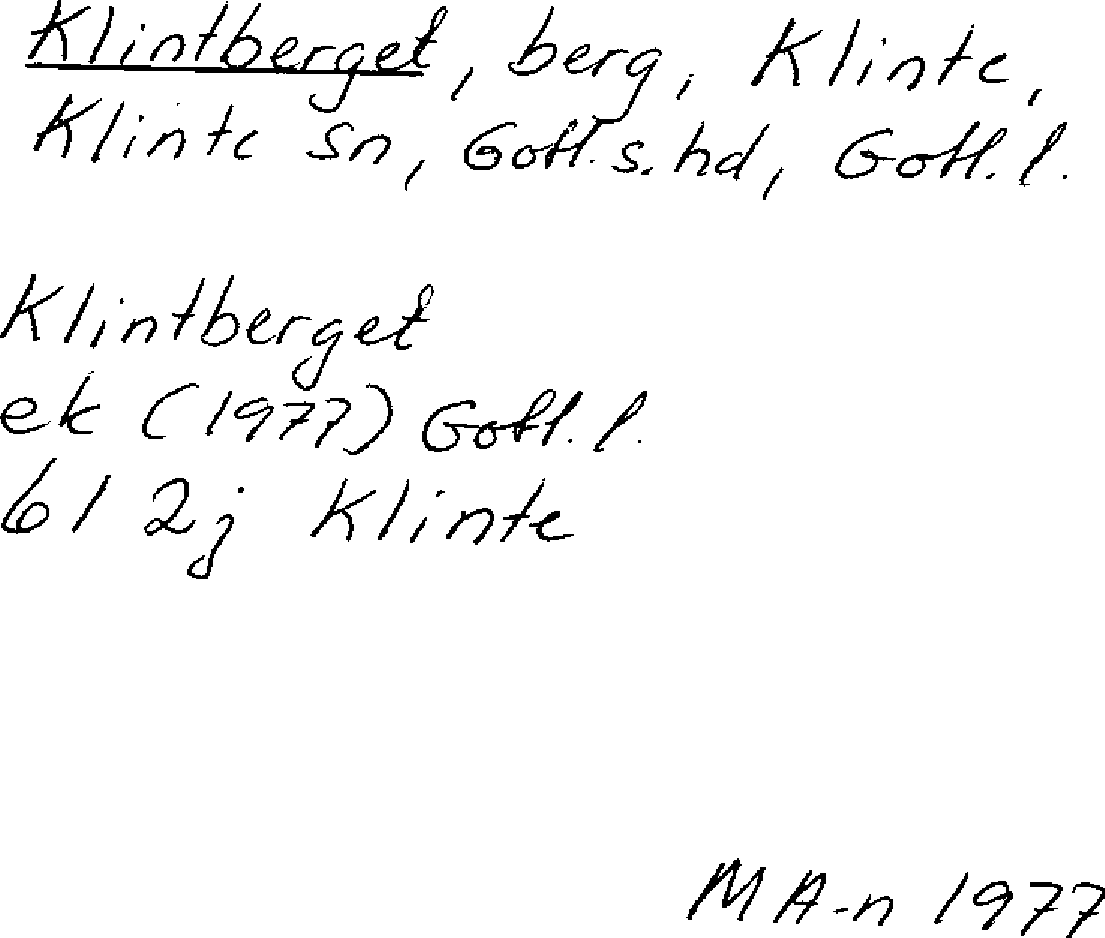 Klintberget, berg, Klinte,
Klinte sn, Gotl. s. hd, Gotl. l.
Klintberget
ek (1977) Gotl. l.
61 2j Klinte
M A-n 1977